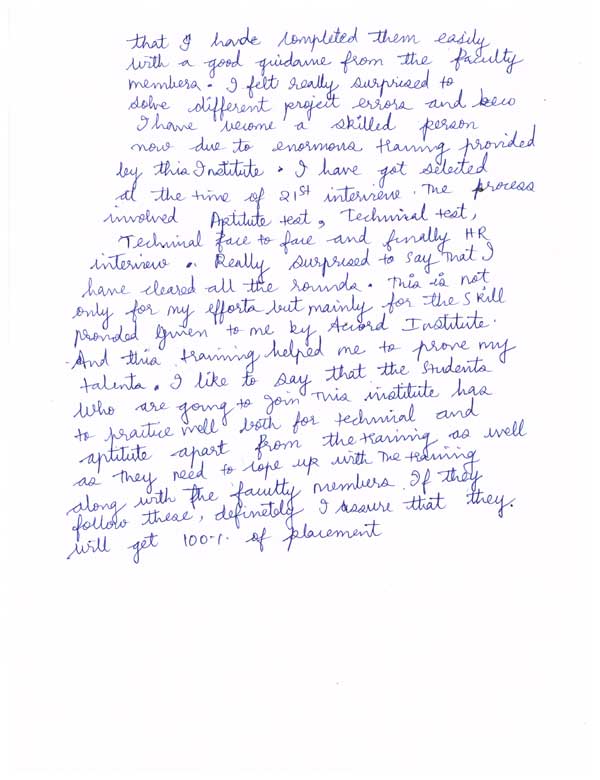 that I havde completed them easily
with a good guidance from the faculty
members. I felt really surprised to
solve different project errors and beco
I have become a skilled person
now due to enormous training provided
by this Institute. I have got selected
at the time of 21st interview. The process
involved Aptitute test, Technical test,
Technical face to face and finally HR
interview. Really surprised to say that I
have cleared all the rounds. This is not
only for my efforts but mainly for the skill
given to me by Accord Institute.
And this training helped me to prove my
talents. I like to say that the students
who are going to join This institute has
to practice well both for technical and
aptitute apart from the training as well
as they need to cope up with the training
along with the faculty members. If they
follow these, definetely I assure that they.
will get 100% of placement